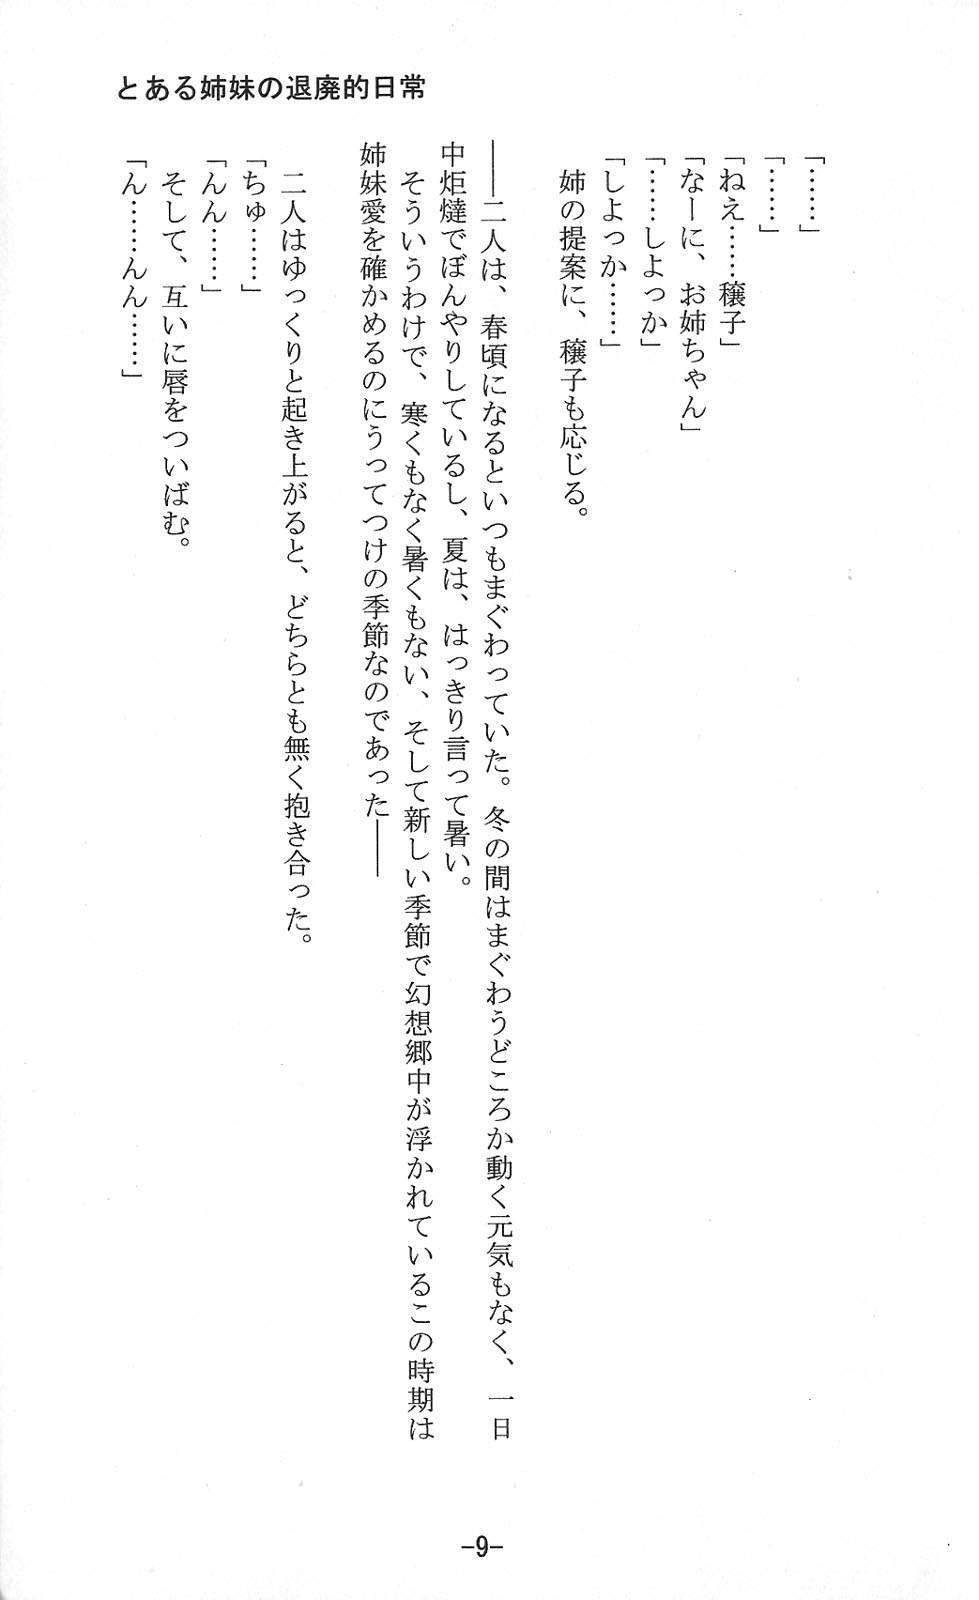 とある姉妹の退廃的日常
「……」
「……」
「ねえ……穣子」
「なーに、お姉ちゃん」
「……しよっか」
「しよっか……」
　姉の提案に、穣子も応じる。
――二人は、春頃になるといつもまぐわっていた。冬の間はまぐわうどころか動く元気もなく、一日
中炬燵でぼんやりしているし、夏は、はっきり言って暑い。
　そういうわけで、寒くもなく暑くもない、そして新しい季節で幻想郷中が浮かれているこの時期は
姉妹愛を確かめるのにうってつけの季節なのであった――
　二人はゆっくりと起き上がると、どちらとも無く抱き合った。
「ちゅ……」
「んん……」
　そして、互いに唇をついばむ。
「ん……んん……」
-9-